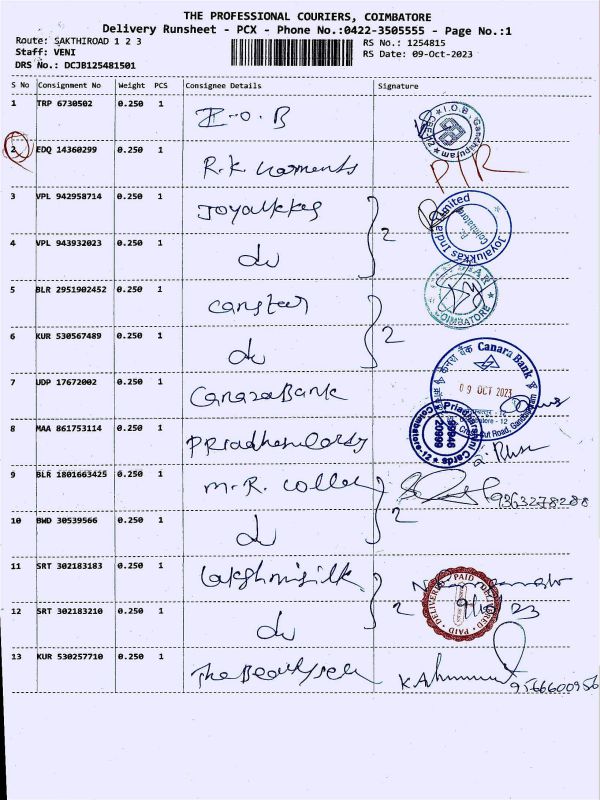 THE PROFESSIONAL COURIERS, COIMBATORE
Delivery Runsheet - PCX - Phone No.:0422-3505555 - Page No.:1
Route: SAKTHIROAD 1 2 3 RS No.: 1254815
Staff: VENI RS Date: 09-Oct-2023
DRS No.: DCJB125481501
S No Consignment No Weight PCS Consignee Details Signature
1 TRP 6730502 0.250 1 I.O.B
2 EDQ 14360299 0.250 1 R.K P/R
3 VPL 942958714 0.250 1 Joyalukkas 2
4 VPL 943932023 0.250 1 du
5 BLR 2951902452 0.250 1 2
6 KUR 530567489 0.250 1 du
7 UDP 17672002 0.250 1 Canara Bank
8 MAA 861753114 0.250 1
9 BLR 1801663425 0.250 1 M.R. 9363278288
10 BWD 30539566 0.250 1 du 2
11 SRT 302183183 0.250 1 Lakshmi silk
12 SRT 302183210 0.250 1 du 2
13 KUR 530257710 0.250 1 The 9566600956
I.O.B. Gandhipuram
Joyalukkas India Limited
Coimbatore
COIMBATORE
केनरा बैंक Canara Bank
09 OCT 2023
Gandhipuram
Priadharshini Cards
99946 20999
Coimbatore-12
PAID DELIVERED PAID